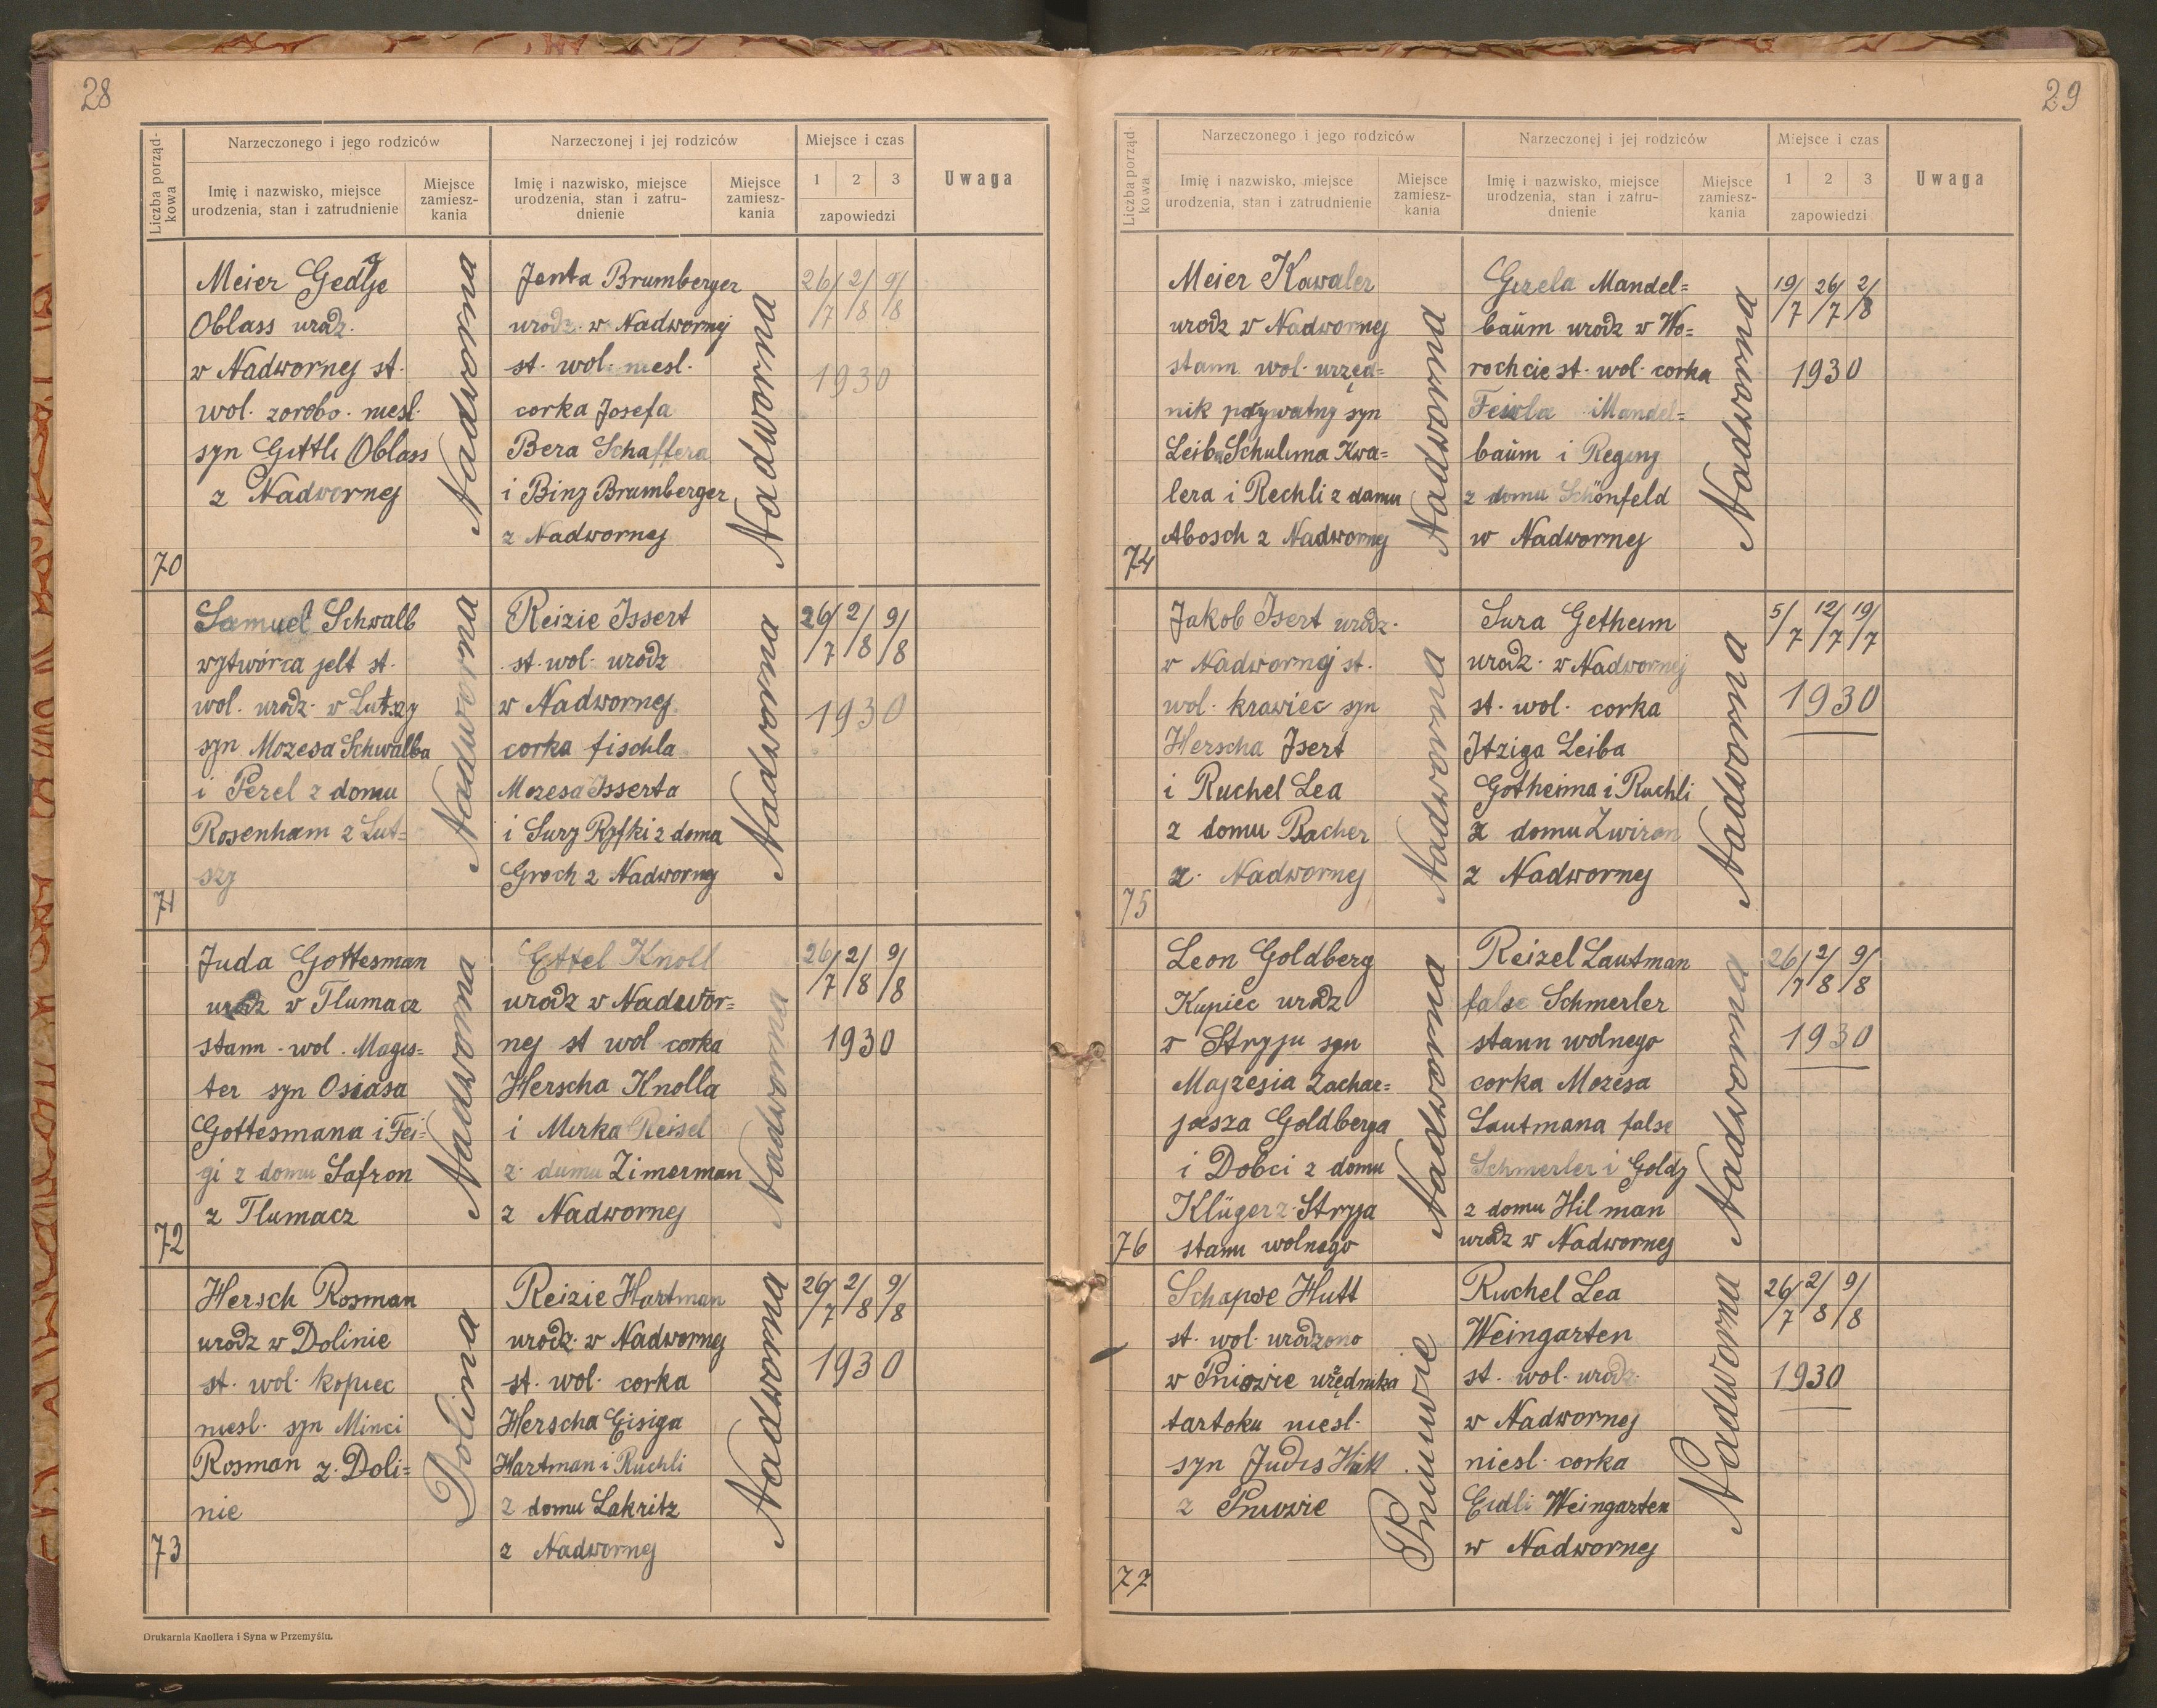 28
Liczba porząd-
kowa
Narzeczonego i jego rodziców
Narzeczonej i jej rodziców
Miejsce i czas
Uwaga
Imię i nazwisko, miejsce
urodzenia, stan i zatrudnienie
Miejsce
zamiesz-
kania
Imię i nazwisko, miejsce
urodzenia, stan i zatru-
dnienie
Miejsce
zamiesz-
kania
1 2 3
zapowiedzi
70
Meier Gedalje
Oblass urodz.
w Nadwornej st.
wol. zorobo. niesl.
syn Gittli Oblass
z Nadwornej
Nadworna
Jenta Brumberger
urodz. w Nadwornej
st. wol. niesl.
corka Josefa
Bera Schaffera
i Biny Brumberger
z Nadwornej
Nadworna
26/7 2/8 9/8
1930
71
Samuel Schwalb
wytwórca jelt st.
wol. urodz. w Lutszy
syn Mozesa Schwalba
i Perel z domu
Rosenham z Lut=
szy
Nadworna
Reizie Issert
st. wol. urodz
w Nadwornej
corka fischla
Mozesa Isserta
i Sury Ryfki z doma
Groch z Nadwornej
Nadworna
26/7 2/8 9/8
1930
72
Juda Gottesman
urodz w Tlumacz
stann. wol. Magis=
ter syn Osiasa
Gottesmana i Fei=
gi z domu Safron
z Tlumacz
Nadworna
Ettel Knoll
urodz w Nadwor=
nej st wol corka
Herscha Knolla
i Mirka Reisel
z dumu Zimerman
z Nadwornej
Nadworna
26/7 2/8 9/8
1930
73
Hersch Rosman
urodz w Dolinie
st. wol. kopiec
niesl. syn Minci
Rosman z. Doli=
nie
Dolina
Reizie Hartman
urodz. w Nadwornej
st. wol. corka
Herscha Eisiga
Hartman i Ruchli
z domu Lakritz
z Nadwornej
Nadworna
26/7 2/8 9/8
1930
Drukarnia Knollera i Syna w Przemyślu.
29
Liczba porząd-
kowa
Narzeczonego i jego rodziców
Narzeczonej i jej rodziców
Miejsce i czas
Uwaga
Imię i nazwisko, miejsce
urodzenia, stan i zatrudnienie
Miejsce
zamiesz-
kania
Imię i nazwisko, miejsce
urodzenia, stan i zatru-
dnienie
Miejsce
zamiesz-
kania
1 2 3
zapowiedzi
74
Meier Kawaler
urodz w Nadwornej
stann wol. urzęd=
nik prywatny syn
Leiba Schulima Kwa=
lera i Rechli z damu
Abosch z Nadwornej
Nadworna
Gizela Mandel=
baŭm urodz w Wo=
rochcie st. wol. corka
Feiwla Mandel=
baŭm i Reginy
z domu Schönfeld
w Nadwornej
Nadworna
19/7 26/7 2/8
1930
75
Jakob Isert urodz.
w Nadwornej st.
wol. krawiec syn
Herscha Jsert
i Ruchel Lea
z domu Bacher
z. Nadwornej
Nadworna
Sura Getheim
urodz. w Nadwornej
st. wol. corka
Itziga Leiba
Gotheima i Ruchli
z domu Zwiron
z Nadwornej
Nadworna
5/7 12/7 19/7
1930
76
Leon Goldberg
Kupiec urodz
w Stryju syn
Majzesia Zachar=
jasza Goldberga
i Dobci z domu
Klüger z. Stryja
stanu wolnego
Nadworna
Reizel Lautman
false Schmerler
stann wolnego
corka Mozesa
Lautmana false
Schmerler i Goldy
z domu Hilman
urodz w Nadwornej
Nadworna
26/7 2/8 9/8
1930
77
Schapse Hutt
st. wol. urodzono
w Pniowie użędnika
tartoku niesl.
syn Judis Hütt
z Pniowie
Pniuwie
Ruchel Lea
Weingarten
st. wol. urodz.
w Nadwornej
niesl. corka
Eidli Weingarten
w Nadwornej
Nadworna
26/7 2/8 9/8
1930